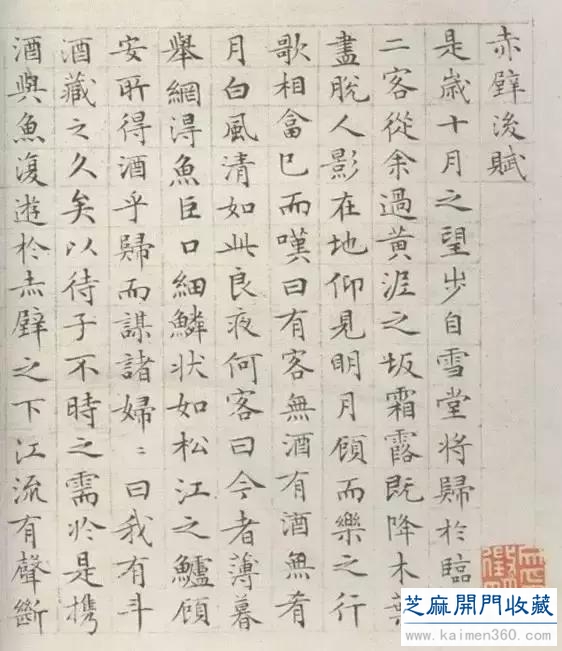 赤壁後賦
是歲十月之望步自雪堂將歸於臨
二客從余過黃泥之坂霜露既降木葉
盡脫人影在地仰見明月顧而樂之行
歌相畣已而嘆曰有客無酒有酒無肴
月白風清如此良夜何客曰今者薄暮
舉網得魚巨口細鱗状如松江之鱸顧
安所得酒乎歸而謀諸婦〻曰我有斗
酒藏之久矣以待子不時之需於是携
酒與魚復遊於赤壁之下江流有聲斷
芝麻開門收藏
www.kaimen360.com